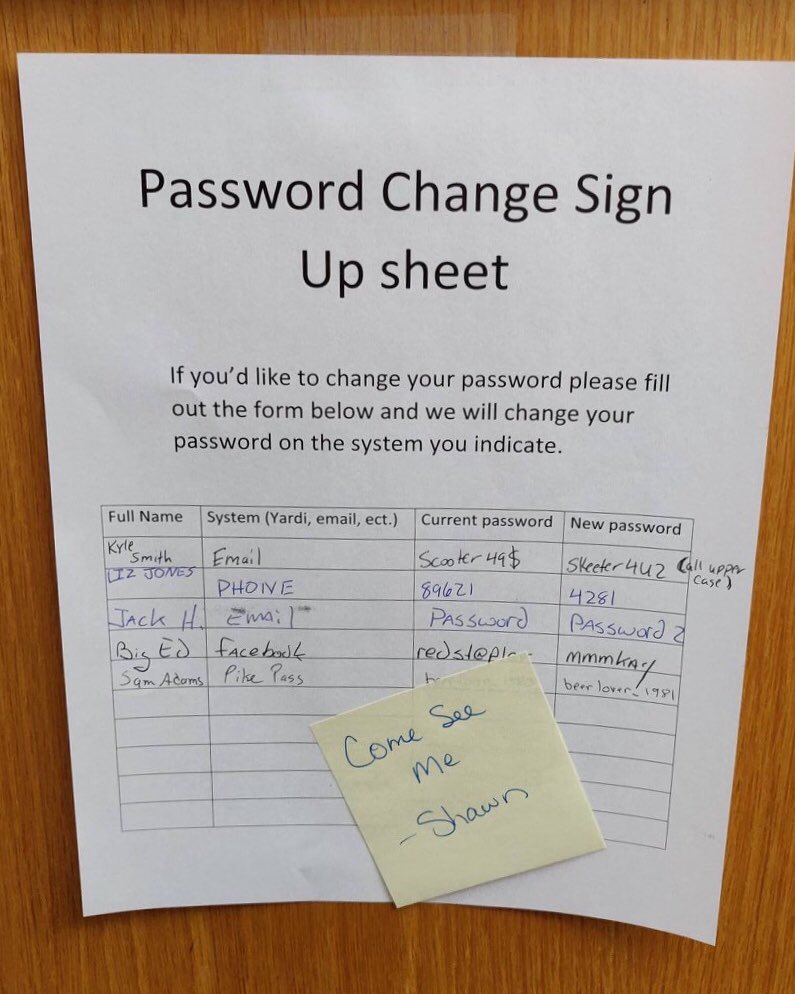 Password Change Sign
Up sheet
If you'd like to change your password please fill
out the form below and we will change your
password on the system you indicate.
Full Name System (Yardi, email, ect.) Current password New password
Kyle Smith Email Scooter49$ Skeeter4U2 (all upper case)
LIZ JONES PHONE 89621 4281
JACK H. Email PASSWORD PASSWORD 2
Big ED facebook mmmkay
Sam Adams Pike Pass beerlover_1981
Come See
Me
- Shawn